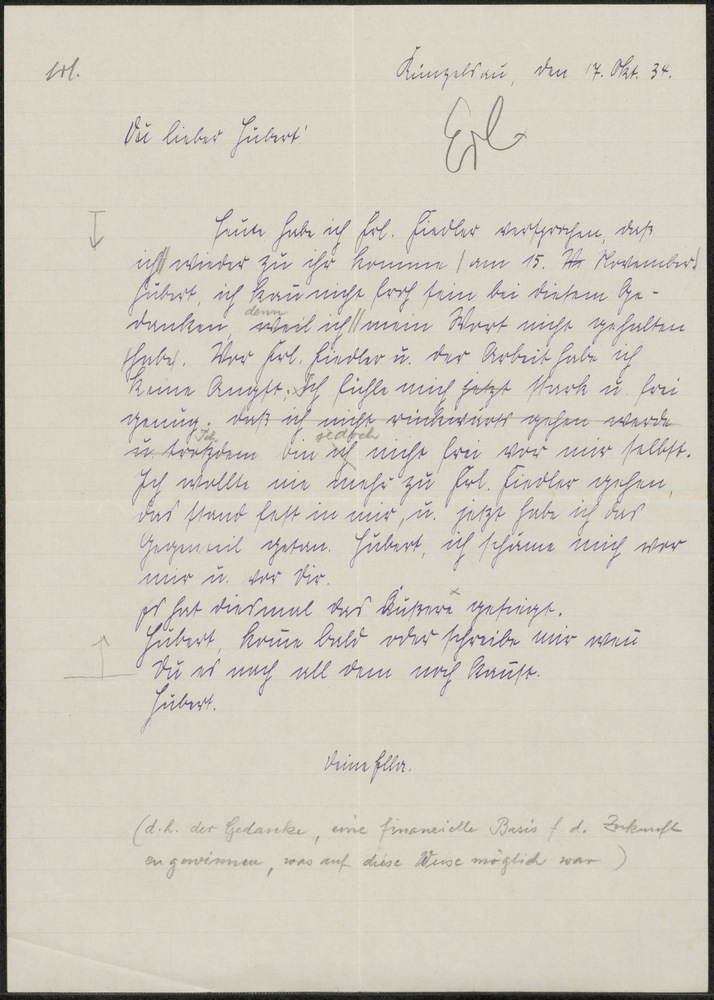 erl.
Künzelsau, den 17. Okt. 34.
Erl
Du lieber Hubert!
Heute habe ich Frl. Fiedler versprochen, daß
ich wieder zu ihr komme (am 15. November)
Hubert, ich kann nicht froh sein bei diesem Ge-
danken, denn weil ich mein Wort nicht gehalten
habe. Vor Frl. Fiedler u. der Arbeit habe ich
keine Angst. Ich fühle mich jetzt stark u. frei
genug, daß ich nicht rückwärts gehen werde
Ich jedoch
u. trotzdem bin ich nicht frei vor mir selbst.
Ich wollte nie mehr zu Frl. Fiedler gehen,
das stand fest in mir, u. jetzt habe ich das
Gegenteil getan. Hubert, ich schäme mich vor
mir u. vor Dir.
Es hat diesmal das Äußere x gesiegt.
Hubert, komme bald oder schreibe mir wenn
Du es nach all dem noch kannst.
Hubert.
Deine Ella.
(d.h. der Gedanke, eine finanzielle Basis f d. Zukunft
zu gewinnen, was auf diese Weise möglich war)